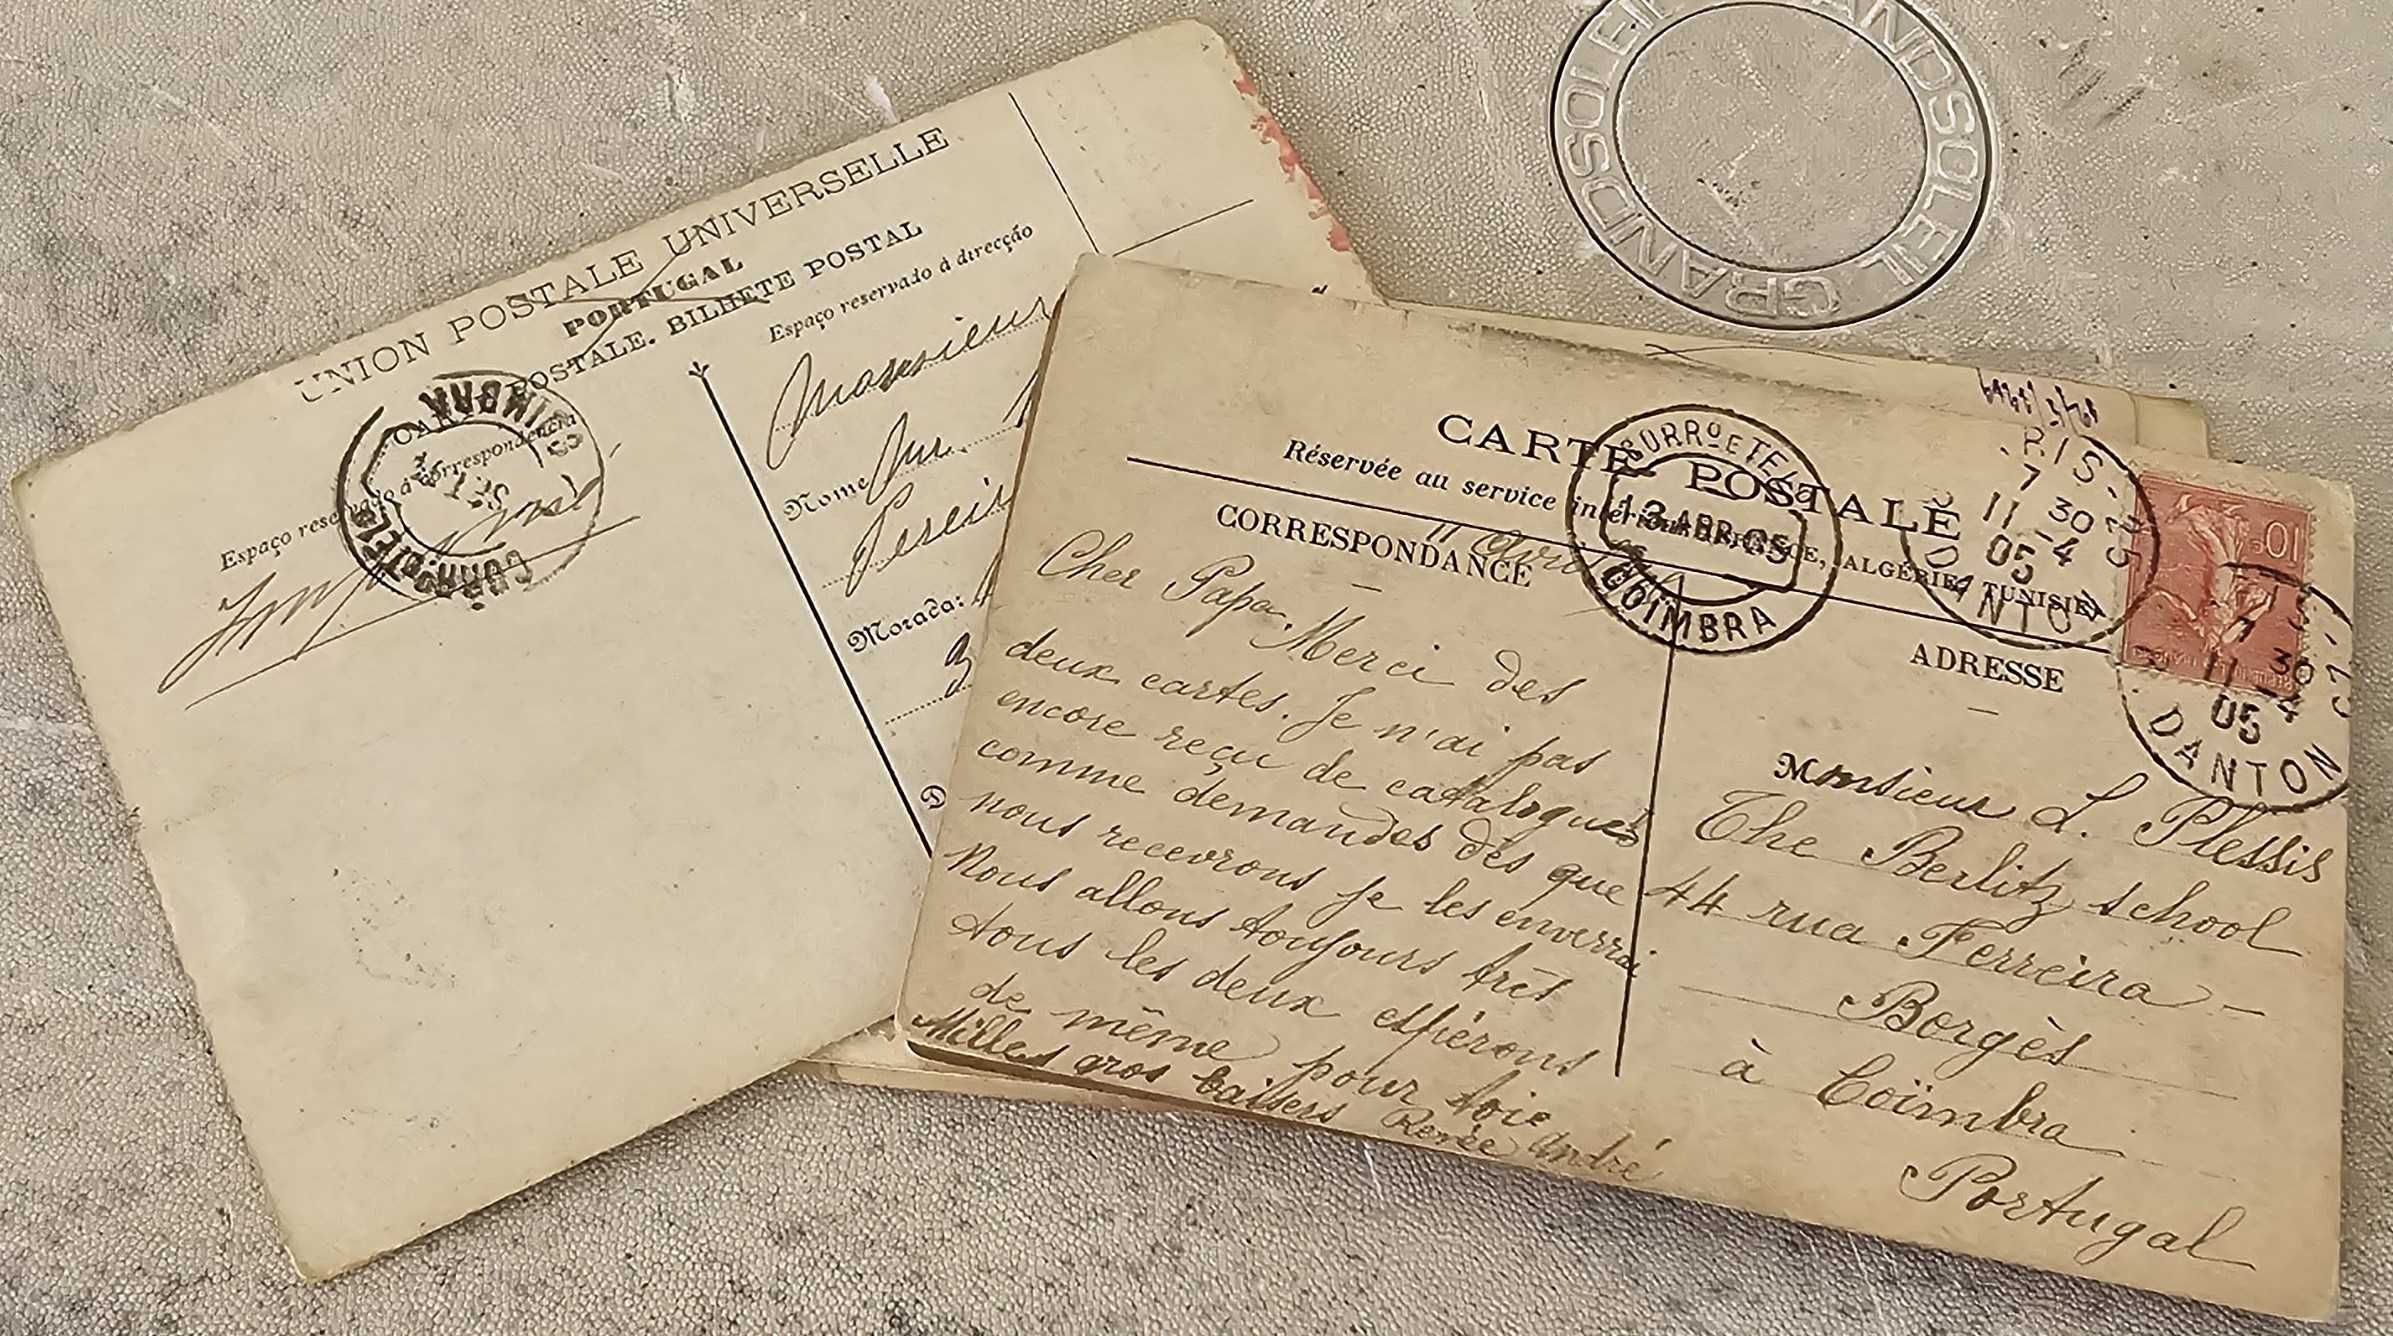 GRANDSOLEIL GRANDSOLEIL
UNION POSTALE UNIVERSELLE
PORTUGAL
POSTALE. BILHETE POSTAL
Espaço reservado á correspondencia
Espaço reservado á direcção
COIMBRA
Monsieur
Nome
Morada:
CARTE POSTALE
Réservée au service intérieur FRANCE, ALGÉRIE, TUNISIE
CORRESPONDANCE
ADRESSE
CORRº E TELº
13 ABR. 05
COIMBRA
7 30
11-4
05
DANTON
10c
7 30
11-4
05
DANTON
11 Avril
Cher Papa Merci des
deux cartes. Je n'ai pas
encore reçu de catalogues
comme demandes dès que
nous recevrons je les enverrai
Nous allons toujours très
tous les deux espérons
de même pour toie
Milles gros baisers Renée André
Monsieur L. Plessis
The Berlitz school
44 rua Ferreira -
Borgès
à Coïmbra
Portugal